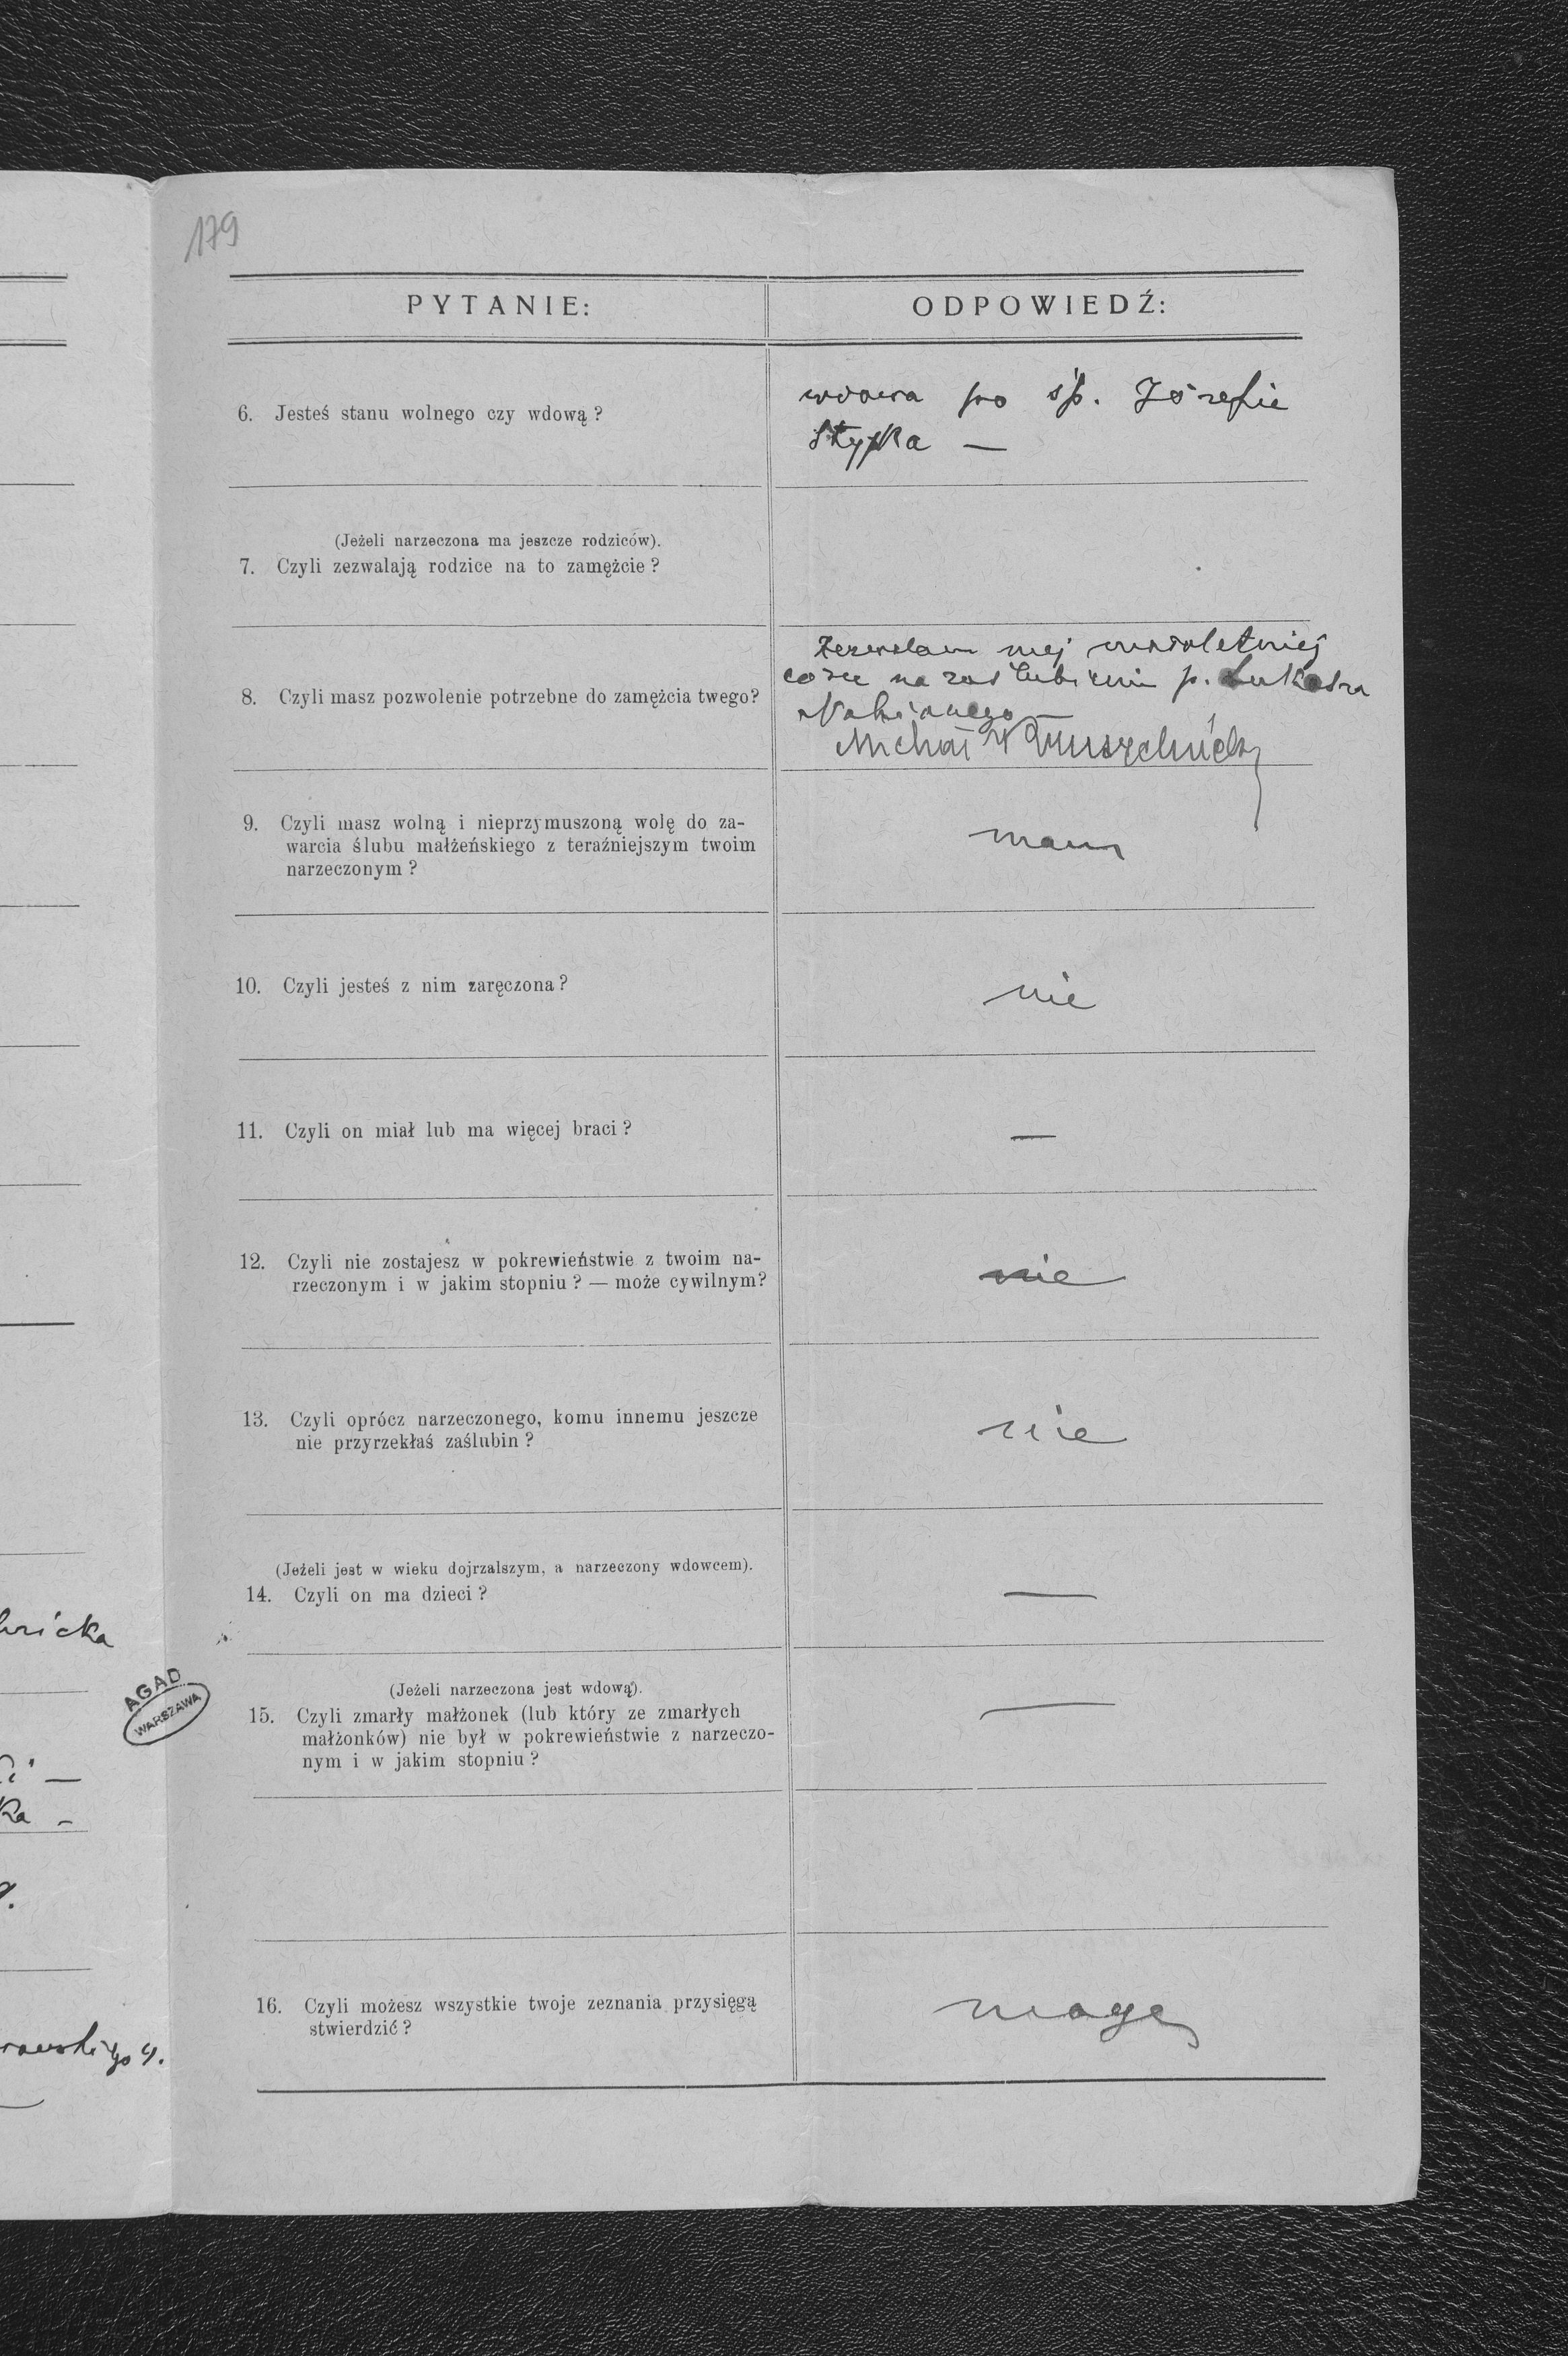 179
PYTANIE:
ODPOWIEDŹ:
6. Jesteś stanu wolnego czy wdową?
wdowa po śp. Józefie
Stypka —
(Jeżeli narzeczona ma jeszcze rodziców).
7. Czyli zezwalają rodzice na to zamężcie?
8. Czyli masz pozwolenie potrzebne do zamężcia twego?
Zezwalam mej małoletniej
córce na zaślubienie p. Łukasza
Michał
9. Czyli masz wolną i nieprzymuszoną wolę do za-
warcia ślubu małżeńskiego z teraźniejszym twoim
narzeczonym?
mam
10. Czyli jesteś z nim zaręczona?
nie
11. Czyli on miał lub ma więcej braci?
—
12. Czyli nie zostajesz w pokrewieństwie z twoim na-
rzeczonym i w jakim stopniu? — może cywilnym?
nie
13. Czyli oprócz narzeczonego, komu innemu jeszcze
nie przyrzekłaś zaślubin?
nie
(Jeżeli jest w wieku dojrzalszym, a narzeczony wdowcem).
14. Czyli on ma dzieci?
—
(Jeżeli narzeczona jest wdową).
15. Czyli zmarły małżonek (lub który ze zmarłych
małżonków) nie był w pokrewieństwie z narzeczo-
nym i w jakim stopniu?
—
16. Czyli możesz wszystkie twoje zeznania przysięgą
stwierdzić?
mogę
AGAD
WARSZAWA